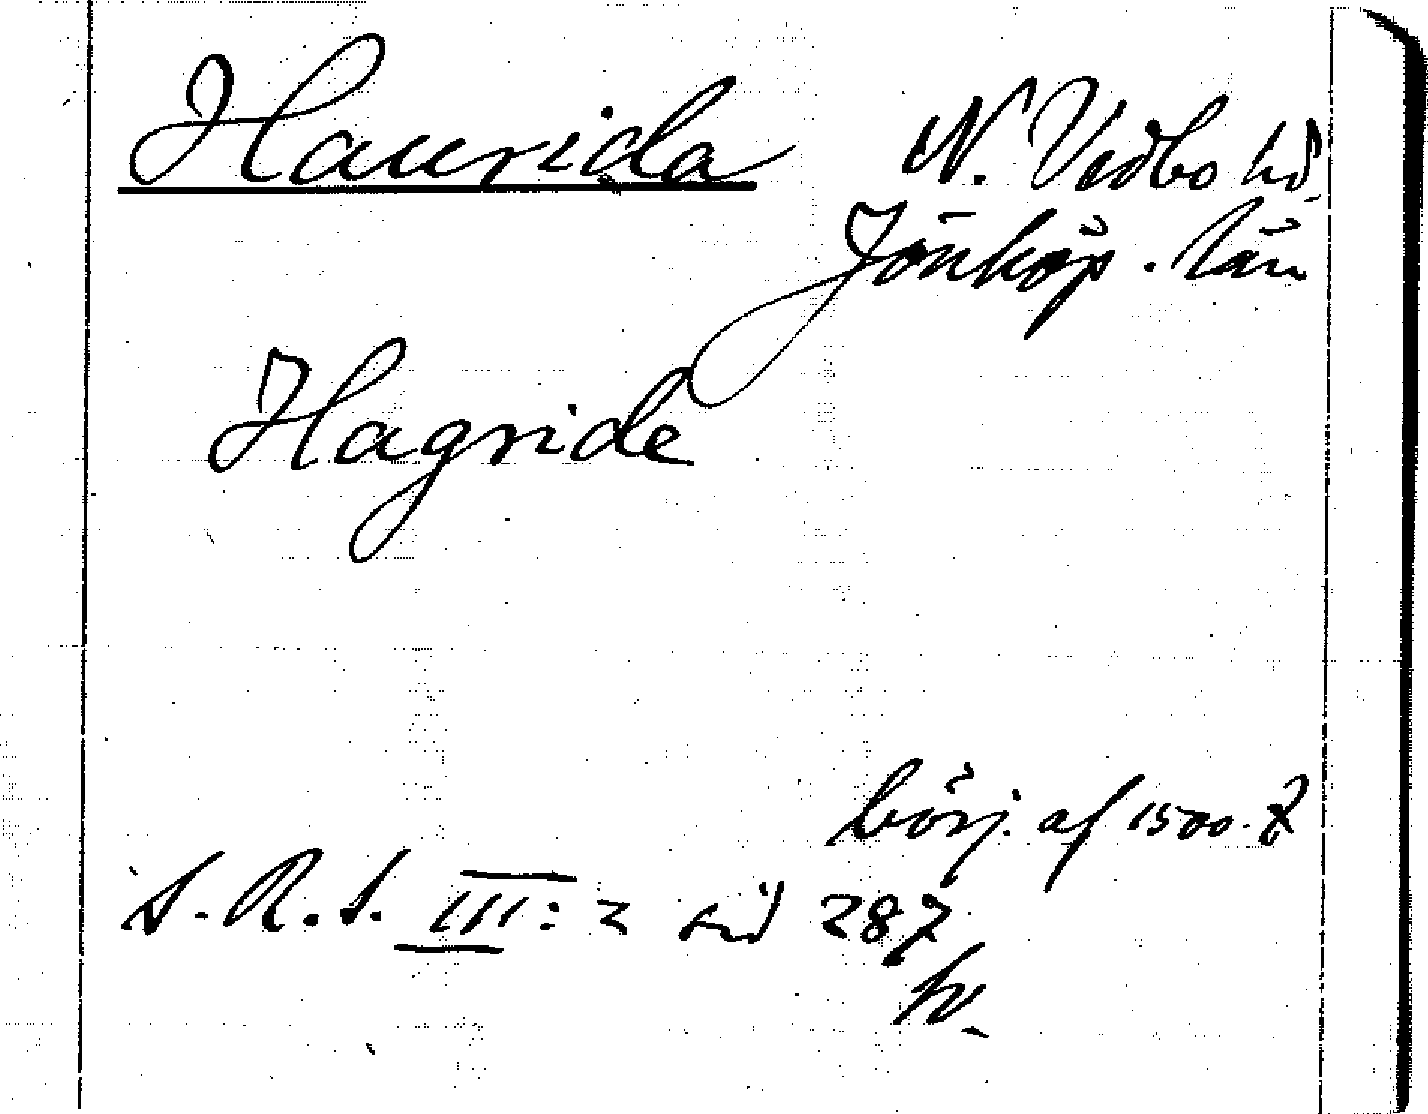 Haurida N. Vedbo hd
Jönköp. län
Hagride
börj. af 1500-t
S. R. S. III: 2 sid 287